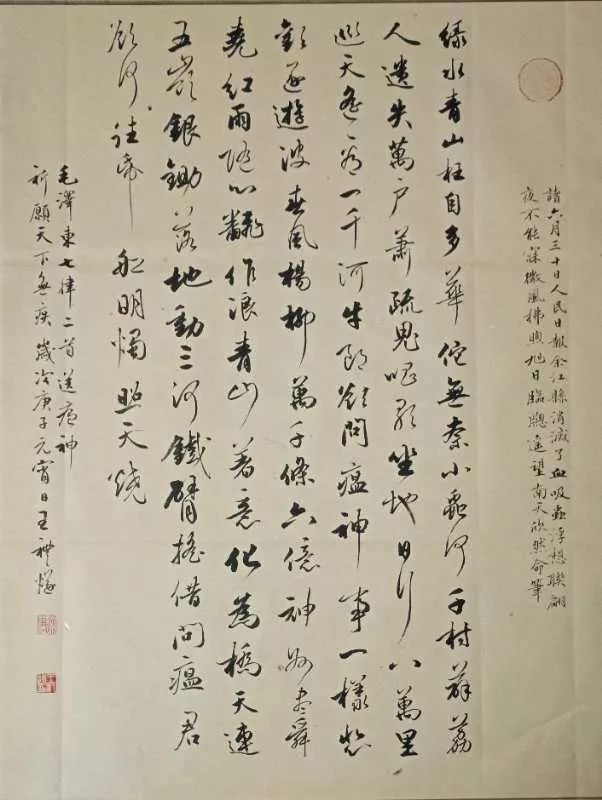 讀六月三十日人民日報余江縣消滅了血吸虫浮想聯翩
夜不能寐微風拂煦旭日臨牕遥望南天欣然命筆
綠水青山枉自多華佗無奈小蟲何千村薜荔
人遺失萬户蕭疏鬼唱歌坐地日行八萬里
巡天遙看一千河牛郎欲問瘟神事一樣悲
歡逐逝波春風楊柳萬千條六億神州盡舜
堯紅雨隨心翻作浪青山著意化為橋天連
五嶺銀鋤落地動三河鐵臂搖借問瘟君
欲何往帋船明燭照天燒
毛澤東七律二首送瘟神
祈願天下無疾歲次庚子元宵日王禮